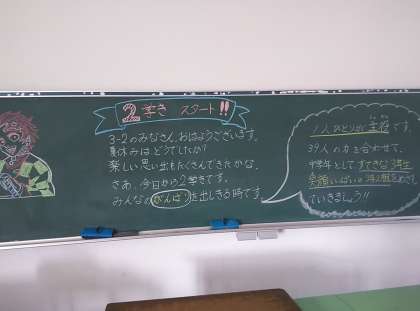 2学き スタート!!
3-2のみなさん、おはようございます。
夏休みはどうでしたか?
楽しい思い出もたくさんできたかな。
さあ、今日から2学きです。
みんなの がんばり を出しきる時です。
1人ひとりが主役です
39人の力を合わせて、
中学年として すてきな 3年生
笑顔いっぱいの
ていきましょう!!